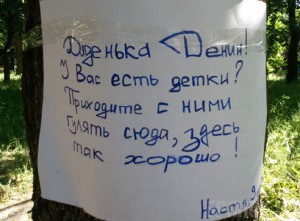 Дяденька Ленин!
У Вас есть детки?
Приходите с ними
гулять сюда, здесь
так хорошо!
Настя.